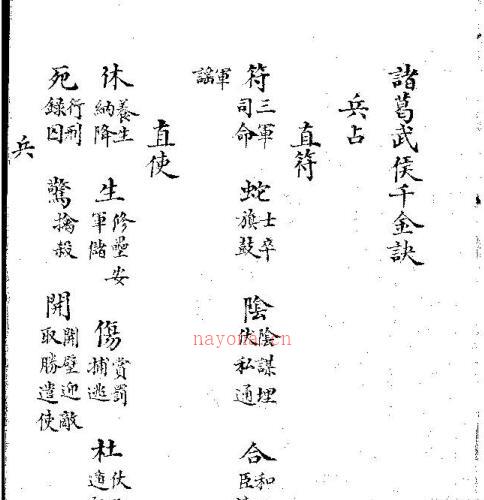 諸葛武侯千金訣
兵占
直符
符 三軍司命 蛇 士卒旗鼓 陰 陰謀埋伏私通 合 和
軍謠
直使
休 養生納降 生 修壘安軍儲 傷 賞罰捕逃 杜 伏
死 行刑録囚 驚 擒殺 開 開壁迎敵取勝遣使
兵
nayona.cn